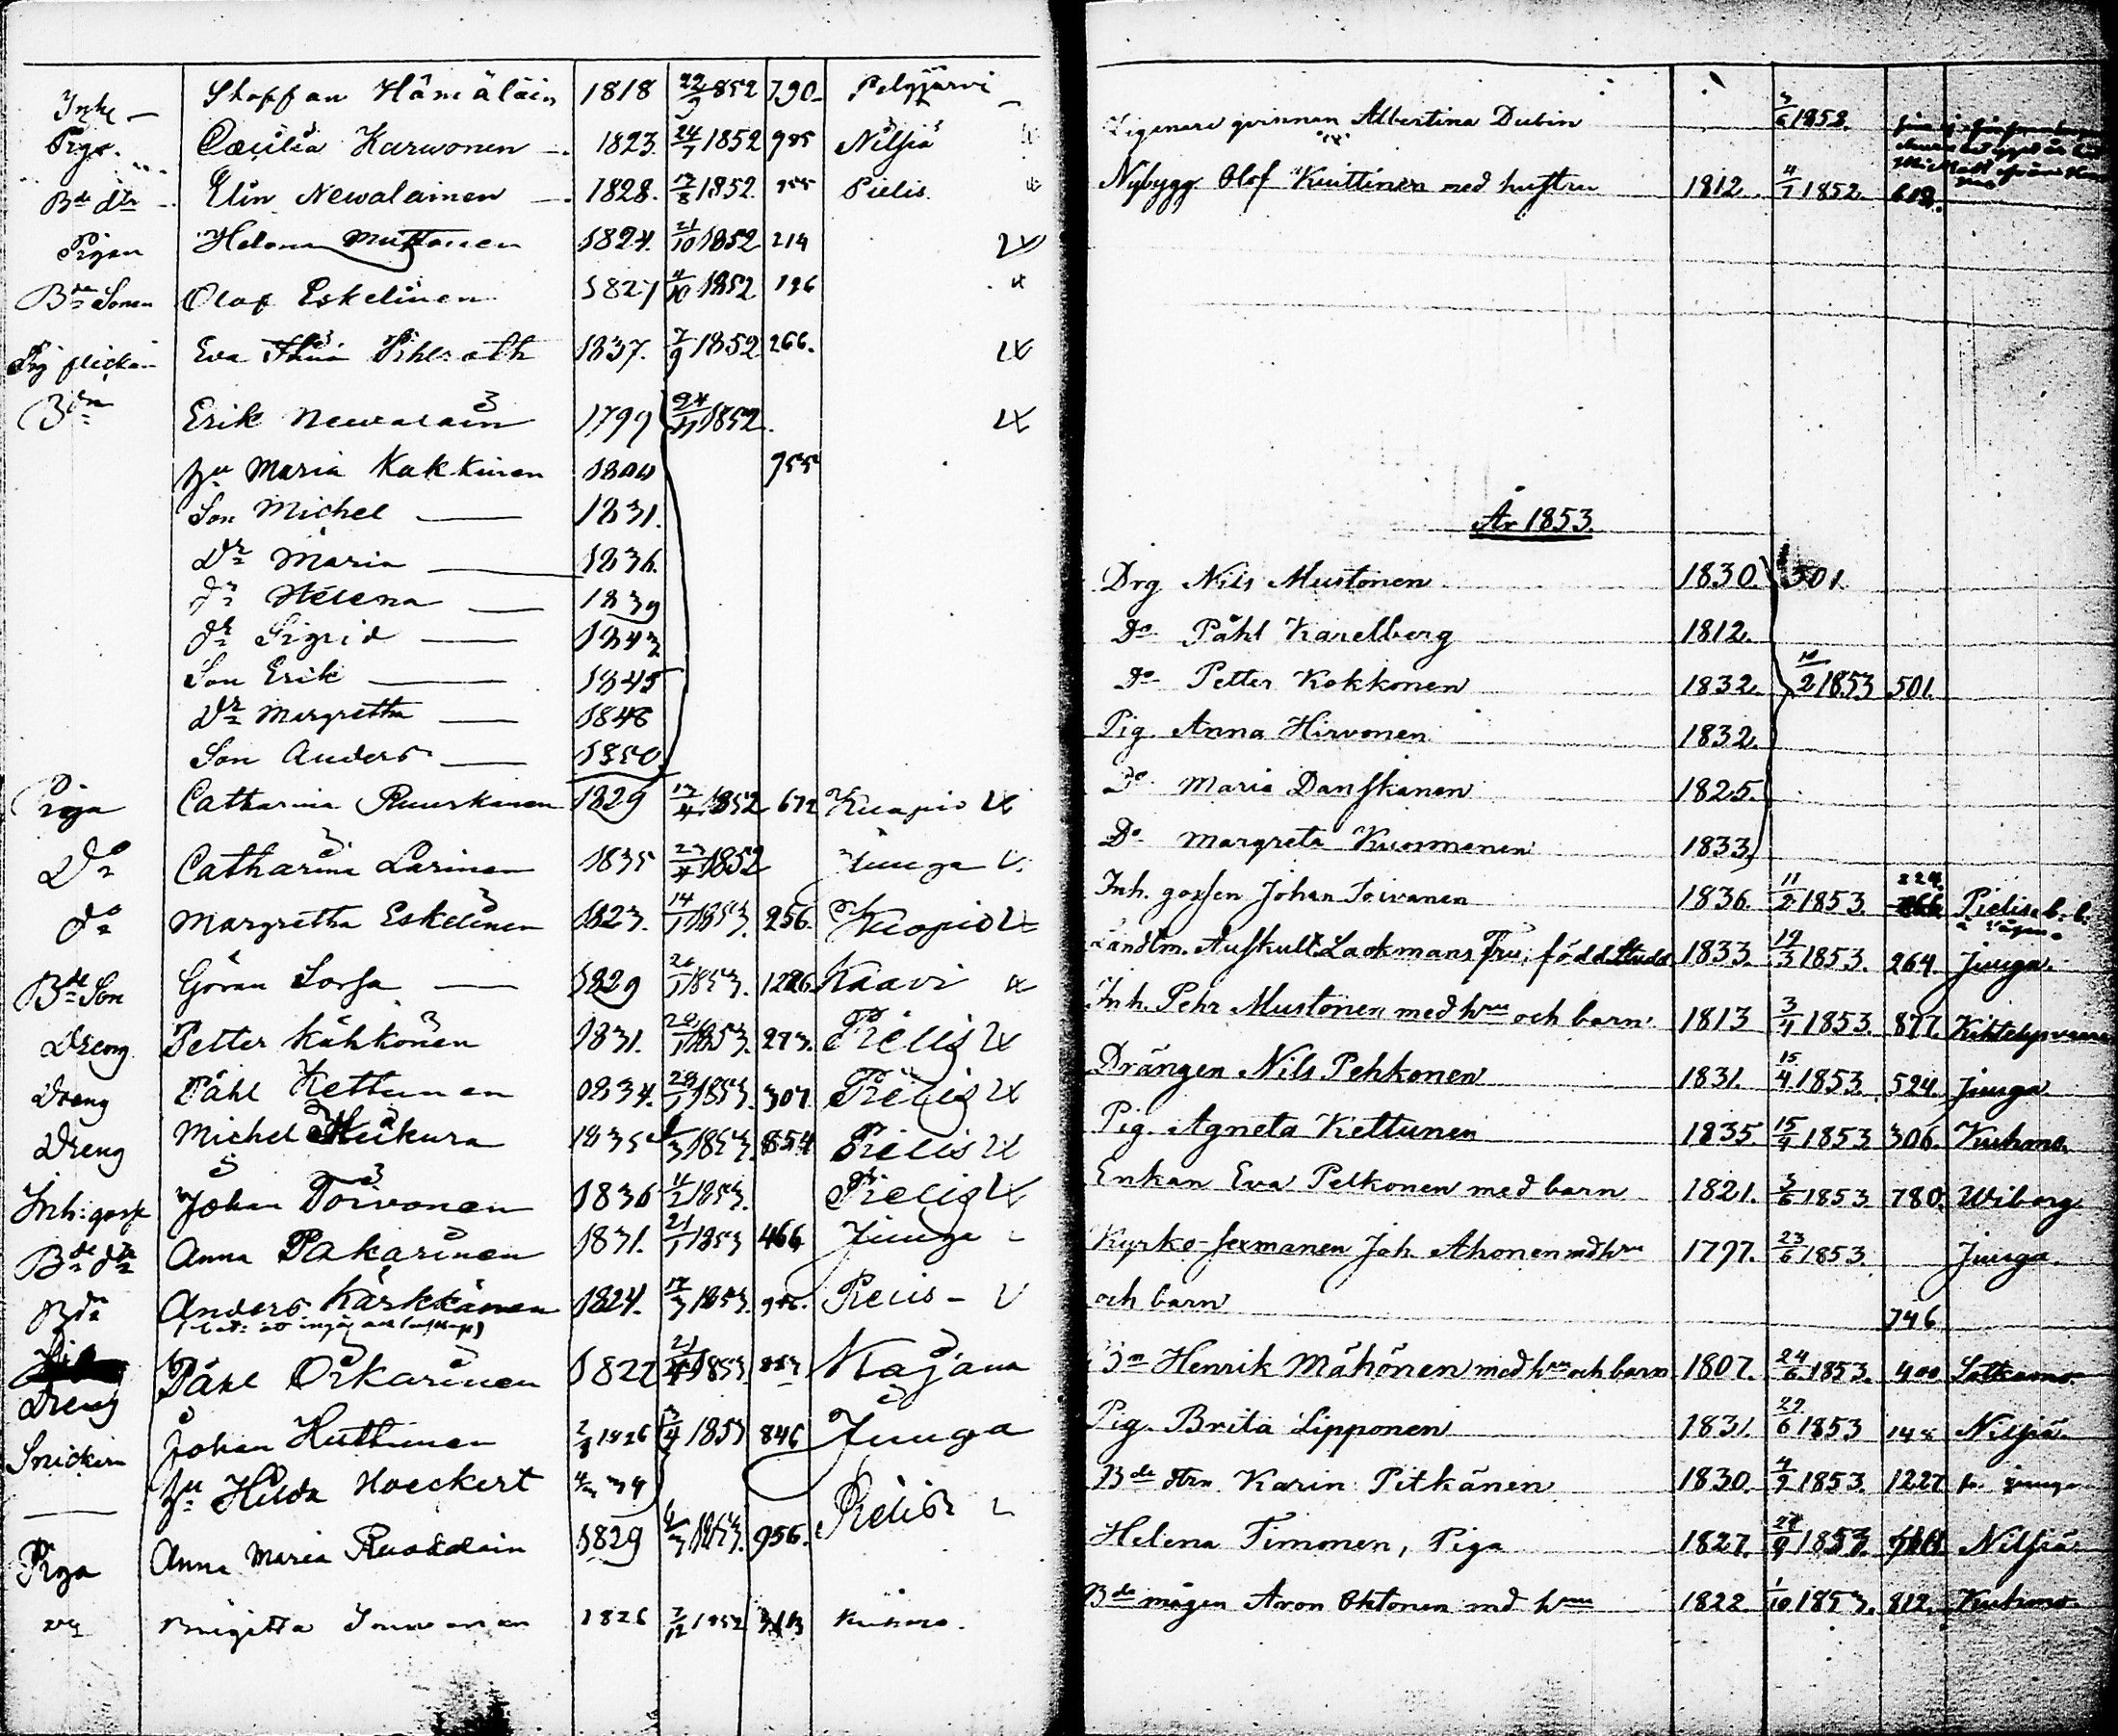 Inhs — Staffan Hämäläin 1818 22/9 852 790 Pelgjärvi
Piga Cæcilia Karwonen — 1823. 24/7 1852 985 Nilsiä
Bde dtr Elin Newalainen — 1828. 17/8 1852. 955 Pielis
Pigan Helena Mustonen 1824. 21/10 1852 214
Bde Sonen Olof Eskelinen 1827 4/10 1852 196
Pig flickan Eva Pihlroth 1837. 7/9 1852 266.
Bdn Erik Newalain 1799 24/11 1852.
hu Maria Kakkinen 1800 955
Son Michel — 1831.
Dr Maria — 1836.
dr Helena — 1839
dr Sigrid — 1843
Son Erik — 1845
Dr Margretha — 1848
Son Anders — 1850
Piga Catharina Ruuskanen 1829 17/4 1852 672 Kuopio
Do Catharina Larinen 1835 23/4 1852 Juuga
do Margretha Eskelinen 1823. 14/1 1853. 256. Kuopio
Bde Son Göran Sorsa — 1829 26/1 1853. 1226 Kaavi
Dreng Petter Kähkönen 1831. 29/1 1853. 273. Pielis
Dreng Påhl Kettunen 1834. 29/1 1853. 307 Pielis
Dreng Michel Heikura 1835 /3 1853. 854 Pielis
Inh: gosse Johan Toivonen 1836 11/2 1853. Pielis
Bde dtr Anna Pakarinen 1831. 21/1 1853 466 Juuga
Bdn Anders Kärkkäinen 1824. 17/3 1853. 956. Pielis —
Dreng Påhl Oskarinen 1822 21/4 1853 Kajana
Snickeri Johan Huttunen 2/8 1826 3/4 1853 846 Juuga
— hu Hilda Hoeckert
Piga Anna Maria 1829 /3 1853. 956. Pielis
Brigitta 1826 7/12 1852 Kuhmo.
qvinnan Albertina Dubin 3/6 1852.
Nybygg Olof Kuittinen med hustru 1812. 4/7 1852. 612.
År 1853.
Drg Nils Mustonen 1830. 501.
Do Påhl Karelberg 1812.
Do Petter Kokkonen 1832. 10/2 1853 501.
Pig. Anna Hirvonen 1832.
Do Maria Danskanen 1825.
Do Margreta Kuosmanen 1833.
Inh. gossen Johan Toivanen 1836. 11/2 1853. 224. Pielis
Landtm. Auskult. Lackmans Fru, född 1833. 19/3 1853. 264. Juuga.
Inh. Pehr Mustonen med hru och barn. 1813 3/4 1853. 877. Kihtelysvaara
Drängen Nils Pehkonen 1831. 15/4 1853. 524. Juuga.
Pig. Agneta Kettunen 1835. 15/4 1853. 306. Kuhmo.
Enkan Eva Pelkonen med barn 1821. 3/6 1853. 780. Wiborg
Kyrko-sexmanen Joh. Ahonen md hru 1797. 23/6 1853. Juuga.
och barn 746
Bn Henrik Mähönen med hru och barn 1807. 24/6 1853. 400 Sotkamo.
Pig. Brita Lipponen 1831. 29/6 1853 148 Nilsiä.
Bde dtrn Karin Pitkänen 1830. 4/9 1853. 1227 fr. Juuga
Helena Timonen, Piga 1827. 27/9 1853. Nilsiä
Bde mågen Aron Oktonen md hru 1822. 1/10 1853. 812. Kuhmo.